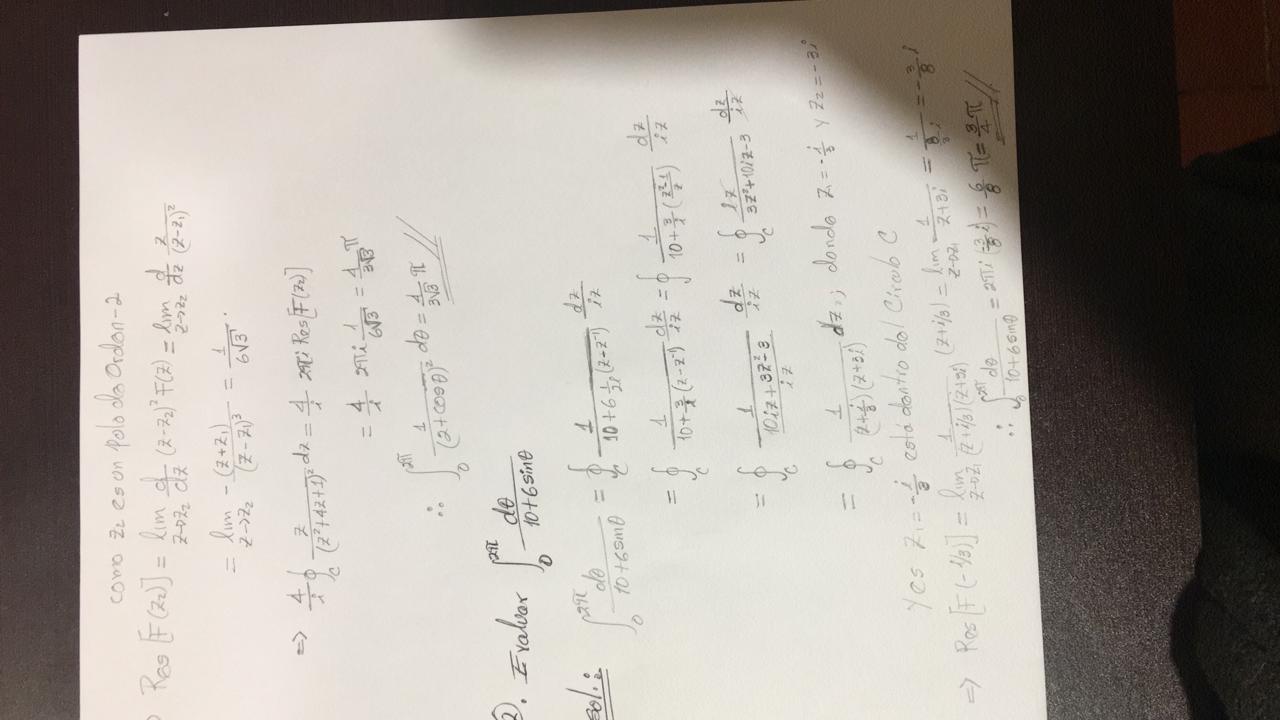 como z₂ es un polo de Orden-2
Res[F(z₂)] = lim_{z→z₂} d/dz (z-z₂)² F(z) = lim_{z→z₂} d/dz z/(z-z₁)²
= lim_{z→z₂} -(z+z₁)/(z-z₁)³ = 1/(6√3).
=> 4/i ∮_C z/(z²+4z+1)² dz = 4/i 2πi Res[F(z₂)]
= 4/i 2πi 1/(6√3) = 4/(3√3) π
∴ ∫₀^{2π} 1/(2+cosθ)² dθ = 4/(3√3) π //
2). Evaluar ∫₀^{2π} dθ/(10+6sinθ)
sol:
∫₀^{2π} dθ/(10+6sinθ) = ∮_C 1/(10+6 1/2i (z-z⁻¹)) dz/iz
= ∮_C 1/(10+3/i (z-z⁻¹)) dz/iz = ∮ 1/(10+3/i ((z²-1)/z)) dz/iz
= ∮_C 1/((10iz+3z²-3)/iz) dz/iz = ∮_C iz/(3z²+10iz-3) dz/iz
= ∮_C 1/((z+i/3)(z+3i)) dz; donde z₁=-i/3 y z₂=-3i
Y es z₁=-i/3 está dentro del Circulo C
=> Res[F(-i/3)] = lim_{z→z₁} 1/((z+i/3)(z+3i)) (z+i/3) = lim_{z→z₁} 1/(z+3i) = 1/(8/3 i) = -3/8 i
∴ ∫₀^{2π} dθ/(10+6sinθ) = 2πi (-3/8 i) = 6/8 π = 3/4 π //